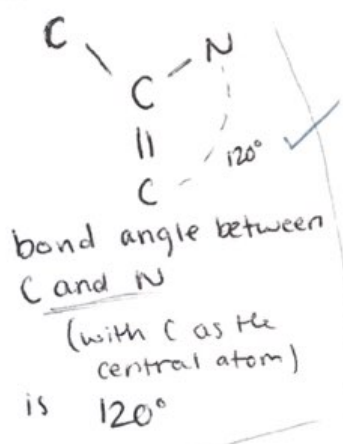 C
N
C
||
C
120°
bond angle between
C and N
(with C as the
central atom)
is 120°